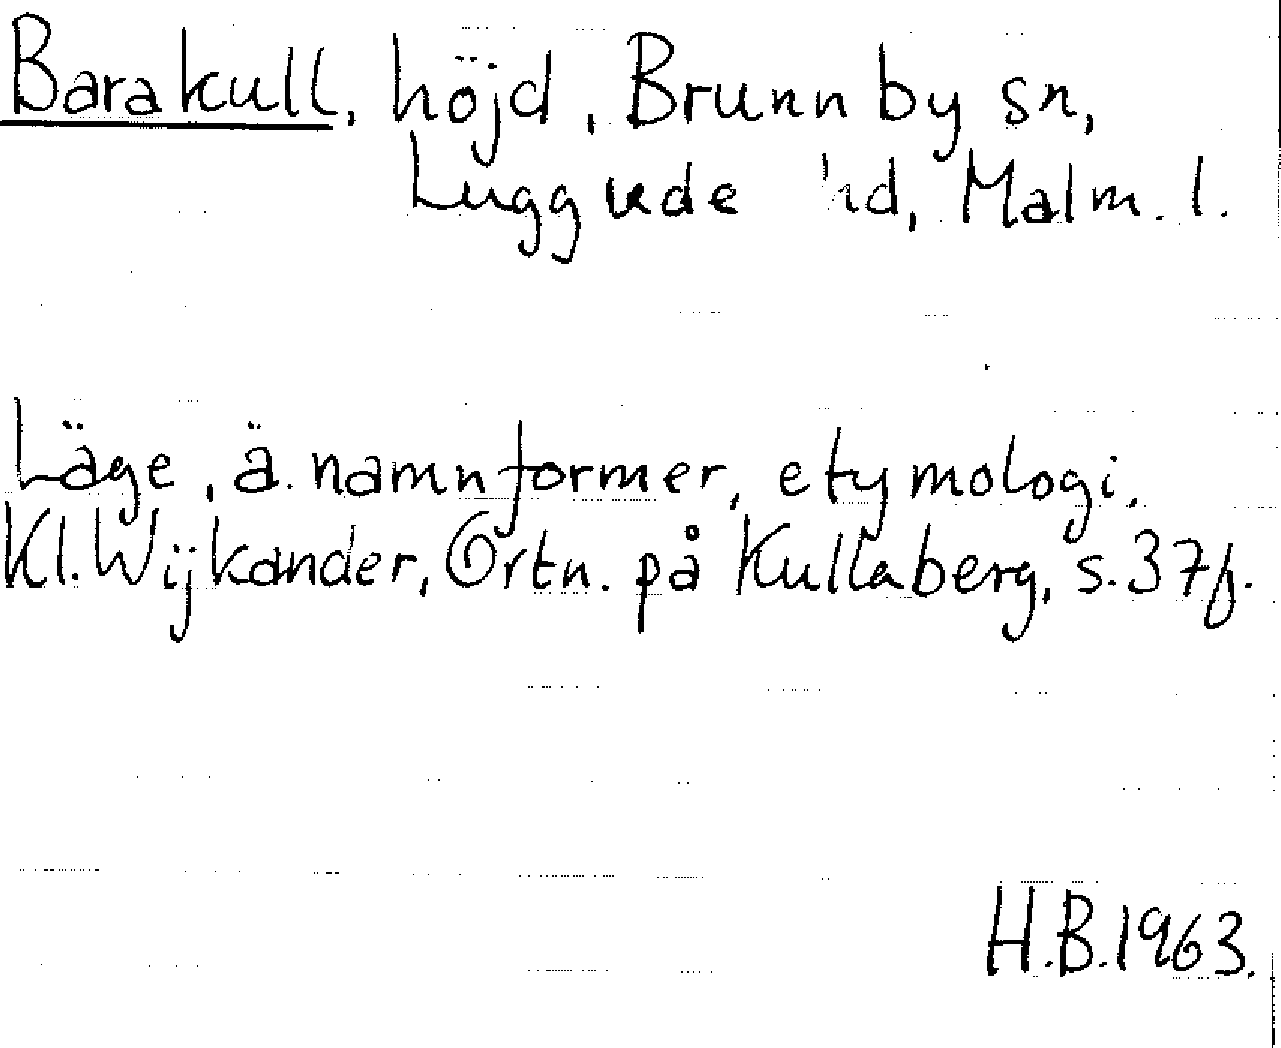 Barakull, höjd, Brunnby sn,
Luggude hd, Malm. l.
Läge, ä. namnformer, etymologi.
Kl. Wijkander, Ortn. på Kullaberg, s. 37f.
H.B. 1963.